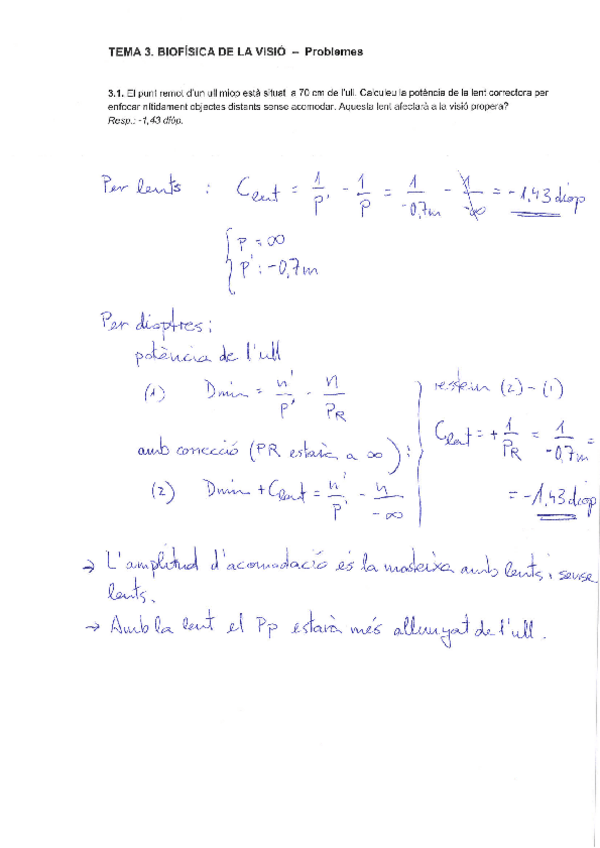 TEMA 3. BIOFÍSICA DE LA VISIÓ – Problemes
3.1. El punt remot d'un ull miop està situat a 70 cm de l'ull. Calculeu la potència de la lent correctora per
enfocar nítidament objectes distants sense acomodar. Aquesta lent afectarà a la visió propera?
Resp.: -1,43 diòp.
Per lents : C_lent = 1/p' - 1/p = 1/-0,7m - 1/-∞ = -1,43 diop
p = ∞
p' : -0,7m
Per dioptres :
potència de l'ull
(1) Dmin = n'/p' - n/P_R
amb correcció (PR estarà a ∞) :
(2) Dmin + C_lent = n'/p' - n/-∞
restem (2) - (1)
C_lent = + 1/P_R = 1/-0,7m =
= -1,43 diop
→ L'amplitud d'acomodació és la mateixa amb lents i sense
lents.
→ Amb la lent el Pp estarà més allunyat de l'ull.